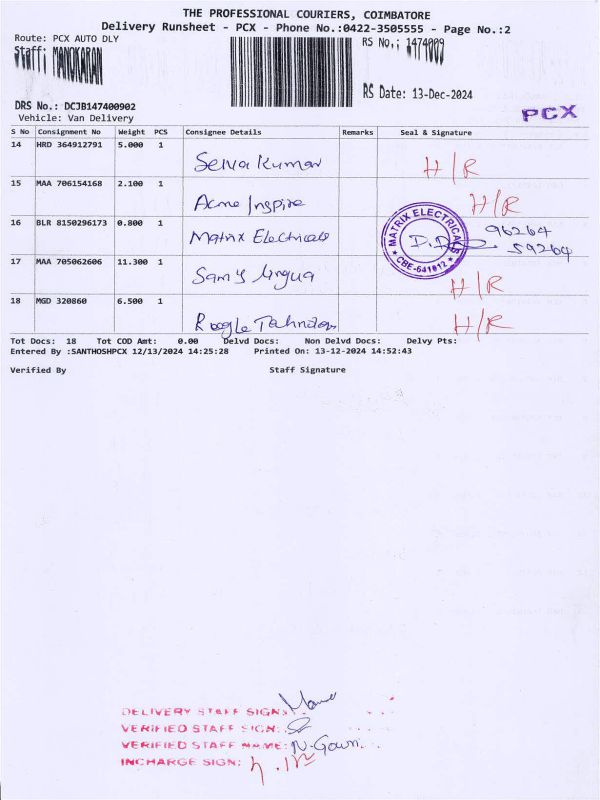 THE PROFESSIONAL COURIERS, COIMBATORE
Delivery Runsheet - PCX - Phone No.:0422-3505555 - Page No.:2
Route: PCX AUTO DLY
RS No.: 1474009
Staff: MANOKARAN
RS Date: 13-Dec-2024
DRS No.: DCJB147400902
PCX
Vehicle: Van Delivery
S No Consignment No Weight PCS Consignee Details Remarks Seal & Signature
14 HRD 364912791 5.000 1 Selva Kumar H/R
15 MAA 706154168 2.100 1 Acme Inspire H/R
16 BLR 8150296173 0.800 1 Matrix Electricals MATRIX ELECTRICALS CBE-641012 96264 59264
17 MAA 705062606 11.300 1 H/R
18 MGD 320860 6.500 1 H/R
Tot Docs: 18 Tot COD Amt: 0.00 Delvd Docs: Non Delvd Docs: Delvy Pts:
Entered By :SANTHOSHPCX 12/13/2024 14:25:28 Printed On: 13-12-2024 14:52:43
Verified By Staff Signature
DELIVERY STAFF SIGN:
VERIFIED STAFF SIGN:
VERIFIED STAFF NAME: N. Gowri
INCHARGE SIGN: